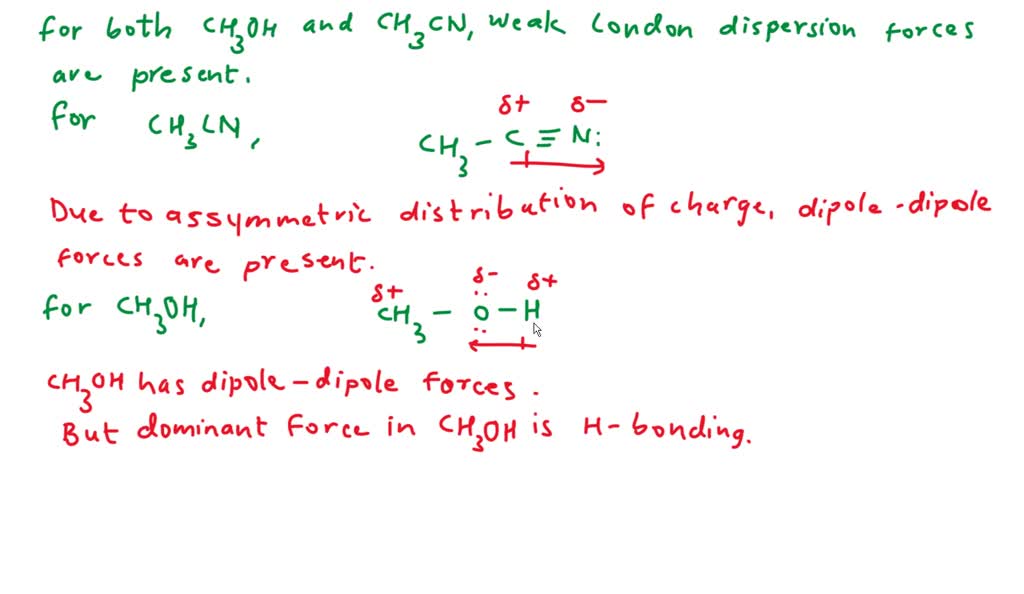 for both CH3OH and CH3CN, weak London dispersion forces
are present.
for CH3CN,
δ+ δ-
CH3 - C ≡ N:
Due to assymmetric distribution of charge, dipole-dipole
forces are present.
δ+ δ- δ+
for CH3OH, CH3 - O - H
CH3OH has dipole-dipole forces.
But dominant force in CH3OH is H-bonding.